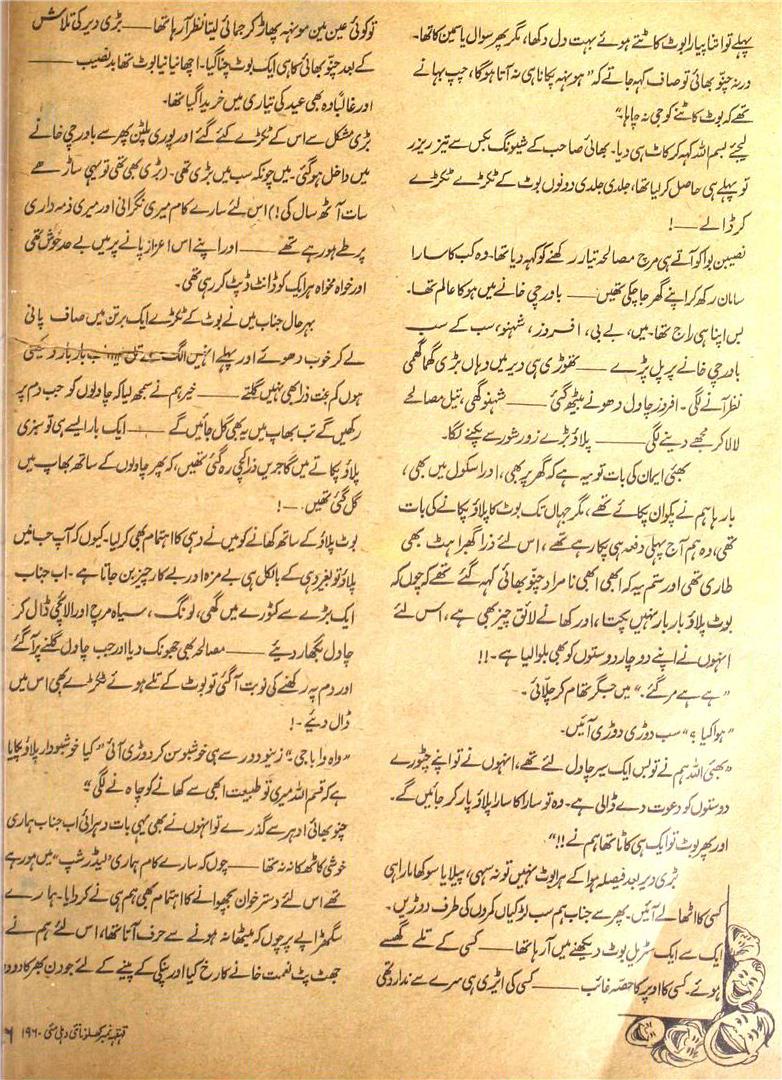 پہلے تو اتنا پیارا بوٹ کاٹتے ہوئے بہت دل دکھا، مگر پھر سوال یاسمین کا تھا۔
ورنہ چنّو بھائی تو صاف کہہ جاتے کہ "ہونہہ پکانا ہی نہ آتا ہوگا، جب بہانے
تھے کہ بوٹ کاٹنے کو جی نہ چاہا۔"
لیجئے بسم اللہ کہہ کر کاٹ ہی دیا۔ بھائی صاحب کے شیونگ بکس سے تیز ریزر
تو پہلے ہی حاصل کر لیا تھا، جلدی جلدی دونوں بوٹ کے ٹکڑے ٹکڑے
کر ڈالے —— !
نصیبن بوا کو آتے ہی مرچ مصالحہ تیار رکھنے کو کہہ دیا تھا۔ وہ کب کا سارا
سامان رکھ کر اپنے گھر جا چکی تھیں —— باورچی خانے میں ہو کا عالم تھا۔
بس اپنا ہی راج تھا۔ میں، بے بی، افروز، شہنو، سب کے سب
باورچی خانے پر پل پڑے —— تھوڑی ہی دیر میں وہاں بڑی گھما گھمی
نظر آنے لگی۔ افروز چاول دھونے بیٹھ گئی —— شہنو گھی، تیل مصالحے
لا لا کر مجھے دینے لگی —— پلاؤ بڑے زور شور سے پکنے لگا۔
بھئی ایران کی بات تو یہ ہے کہ گھر پر بھی، اور اسکول میں بھی،
بارہا ہم نے پکوان پکائے تھے، مگر جہاں تک بوٹ کا پلاؤ پکانے کی بات
تھی، وہ ہم آج پہلی دفعہ ہی پکا رہے تھے، اس لئے ذرا گھبراہٹ بھی
طاری تھی اور ستم یہ کہ ابھی ابھی نامراد چنّو بھائی کہہ گئے تھے کہ چوں کہ
بوٹ پلاؤ بار بار نہیں پکتا، اور کھانے لائق چیز بھی ہے، اس لئے
انہوں نے اپنے دوچار دوستوں کو بھی بلوا لیا ہے۔!!
"ہے ہے مر گئے۔" میں جگر تھام کر چلّائی۔
"ہوا کیا؟" سب دوڑی دوڑی آئیں۔
"بھئی اللہ ہم نے تو بس ایک سیر چاول لئے تھے، انہوں نے تو اپنے چٹورے
دوستوں کو دعوت دے ڈالی ہے۔ وہ تو سارا کا سارا پلاؤ پار کر جائیں گے۔
اور پھر بوٹ تو ایک ہی کاٹا تھا ہم نے!!"
بڑی دیر بعد فیصلہ ہوا کہ ہرا بوٹ نہیں تو نہ سہی، پیلا یا سوکھا مارا ہی
کسی کا اٹھا لے آئیں۔ پھر سے جناب ہم سب لڑکیاں کمروں کی طرف دوڑیں۔
ایک سے ایک سڑیل بوٹ دیکھنے میں آ رہا تھا —— کسی کے تلے گھسے
ہوئے۔ کسی کا اوپر کا حصّہ غائب —— کسی کی ایڑی ہی سرے سے ندارد تھی
تو کوئی عین مین مونہہ پھاڑ کر جمائی لیتا نظر آ رہا تھا —— بڑی دیر کی تلاش
کے بعد چنّو بھائی کا ہی ایک بوٹ چنا گیا۔ اچھا نیا نیا بوٹ تھا بدنصیب ——
اور غالباً وہ بھی عید کی تیاری میں خریدا گیا تھا۔
بڑی مشکل سے اس کے ٹکڑے کئے گئے اور پوری پلٹن پھر سے باورچی خانے
میں داخل ہو گئی۔ میں چونکہ سب میں بڑی تھی۔ (بڑی بھی تھی تو یہی ساڑھے
سات آٹھ سال کی!) اس لئے سارے کام میری نگرانی اور میری ذمہ داری
پر طے ہو رہے تھے —— اور اپنے اس اعزاز پانے پر میں بے حد خوش تھی
اور خواہ مخواہ ہر ایک کو ڈانٹ ڈپٹ کر رہی تھی۔
بہر حال جناب میں نے بوٹ کے ٹکڑے ایک برتن میں صاف پانی
لے کر خوب دھوئے اور پہلے انہیں الگ سے تل لیا۔ اب بار بار دیکھتی
ہوں کم بخت ذرا بھی نہیں گلتے —— خیر ہم نے سمجھ لیا کہ چاولوں کو جب دم پر
رکھیں گے تب بھاپ میں یہ بھی گل جائیں گے —— ایک بار ایسے ہی تو سبزی
پلاؤ پکاتے میں گاجریں ذرا کچی رہ گئی تھیں، کہ پھر چاولوں کے ساتھ بھاپ میں
گل گئی تھیں —— !
بوٹ پلاؤ کے ساتھ کھانے کو میں نے دہی کا اہتمام بھی کر لیا۔ کیوں کہ آپ جانیں
پلاؤ تو بغیر دہی کے بالکل ہی بے مزہ اور بے کار چیز بن جاتا ہے۔ اب جناب
ایک بڑے سے کٹورے میں گھی، لونگ، سیاہ مرچ اور الائچی ڈال کر
چاول بگھار دیئے —— مصالحہ بھی جھونک دیا اور جب چاول گلنے پر آ گئے
اور دم پہ رکھنے کی نوبت آ گئی تو بوٹ کے تلے ہوئے ٹکڑے بھی اس میں
ڈال دیئے۔!
"واہ وا باجی۔" زینو دور سے ہی خوشبو سن کر دوڑی آئی "کیا خوشبودار پلاؤ پکایا
ہے کہ قسم اللہ میری تو طبیعت ابھی سے کھانے کو چاہنے لگی۔"
چنّو بھائی ادہر سے گذرے تو انہوں نے بھی یہی بات دہرائی اب جناب ہماری
خوشی کا ٹھکانہ نہ تھا —— چوں کہ سارے کام ہماری "لیڈرشپ" میں ہو رہے
تھے اس لئے دسترخوان بچھوانے کا اہتمام بھی ہم ہی نے کروایا۔ ہمارے
سگھڑاپے پر چوں کہ میٹھا نہ ہونے سے حرف آتا تھا، اس لئے ہم نے
جھٹ پٹ نعمت خانے کا رخ کیا اور پنکی کے پینے کے لئے جو دن بھر کا دودھ
قہقہہ نمبر کھلونا نئی دہلی مئی ۱۹۶۰